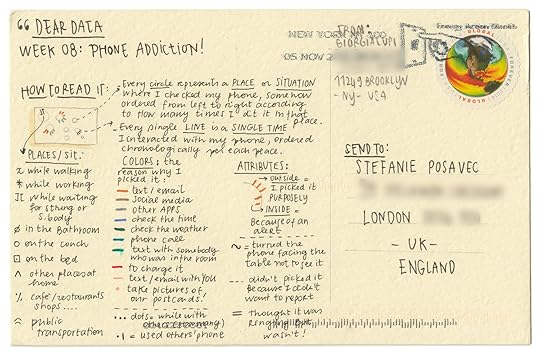 “ DEAR DATA
WEEK 08: PHONE ADDICTION!
HOW TO READ IT:
Every circle represents a PLACE or SITUATION
where I checked my phone, somehow
ordered from left to right according
to how many times I did it in that
place.
Every single LINE is a SINGLE TIME
I interacted with my phone, ordered
chronologically per each peace.
PLACES/sit.
while walking
* while working
while waiting
for stheng or
s.body
ø in the bathroom
o on the couch
on the bed
^ other places at
home
cafe/restaurants
shops ....
public
transportation
COLORS: the
reason why I
picked it:
text / email
social media
other APPS
check the time
check the weather
phone call
text with somebody
who was in the room
to charge it
text/email with YOU
take pictures of
our postcards!
.... dots = while with
= used others' phone
ATTRIBUTES:
outside =
I picked it
PURPOSELY
INSIDE =
Because of an
alert
~ = turned the
phone facing the
table not to see it
.... didn't picked it
because I didn't
want to report
= thought it was
ringing but
wasn't!
FROM:
GIORGIA LUPI
11249 BROOKLYN
- NY - USA
NEW YORK NY 100
05 NOV
GLOBAL
FOREVER
SEND TO:
STEFANIE POSAVEC
LONDON
- UK -
ENGLAND